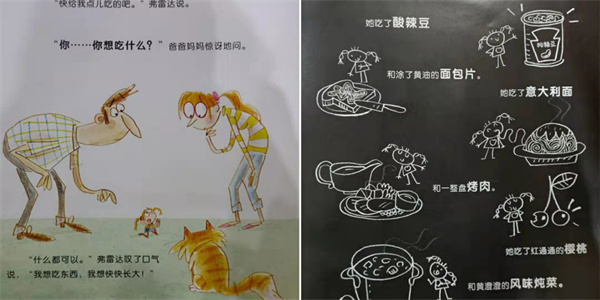 “快给我点儿吃的吧。”弗雷达说。
“你……你想吃什么？”爸爸妈妈惊讶地问。
“什么都可以。”弗雷达叹了口气
说，“我想吃东西，我想快快长大！”
她吃了酸辣豆
和涂了黄油的面包片。
她吃了意大利面
和一整盘烤肉。
她吃了红通通的樱桃
和黄澄澄的风味炖菜。